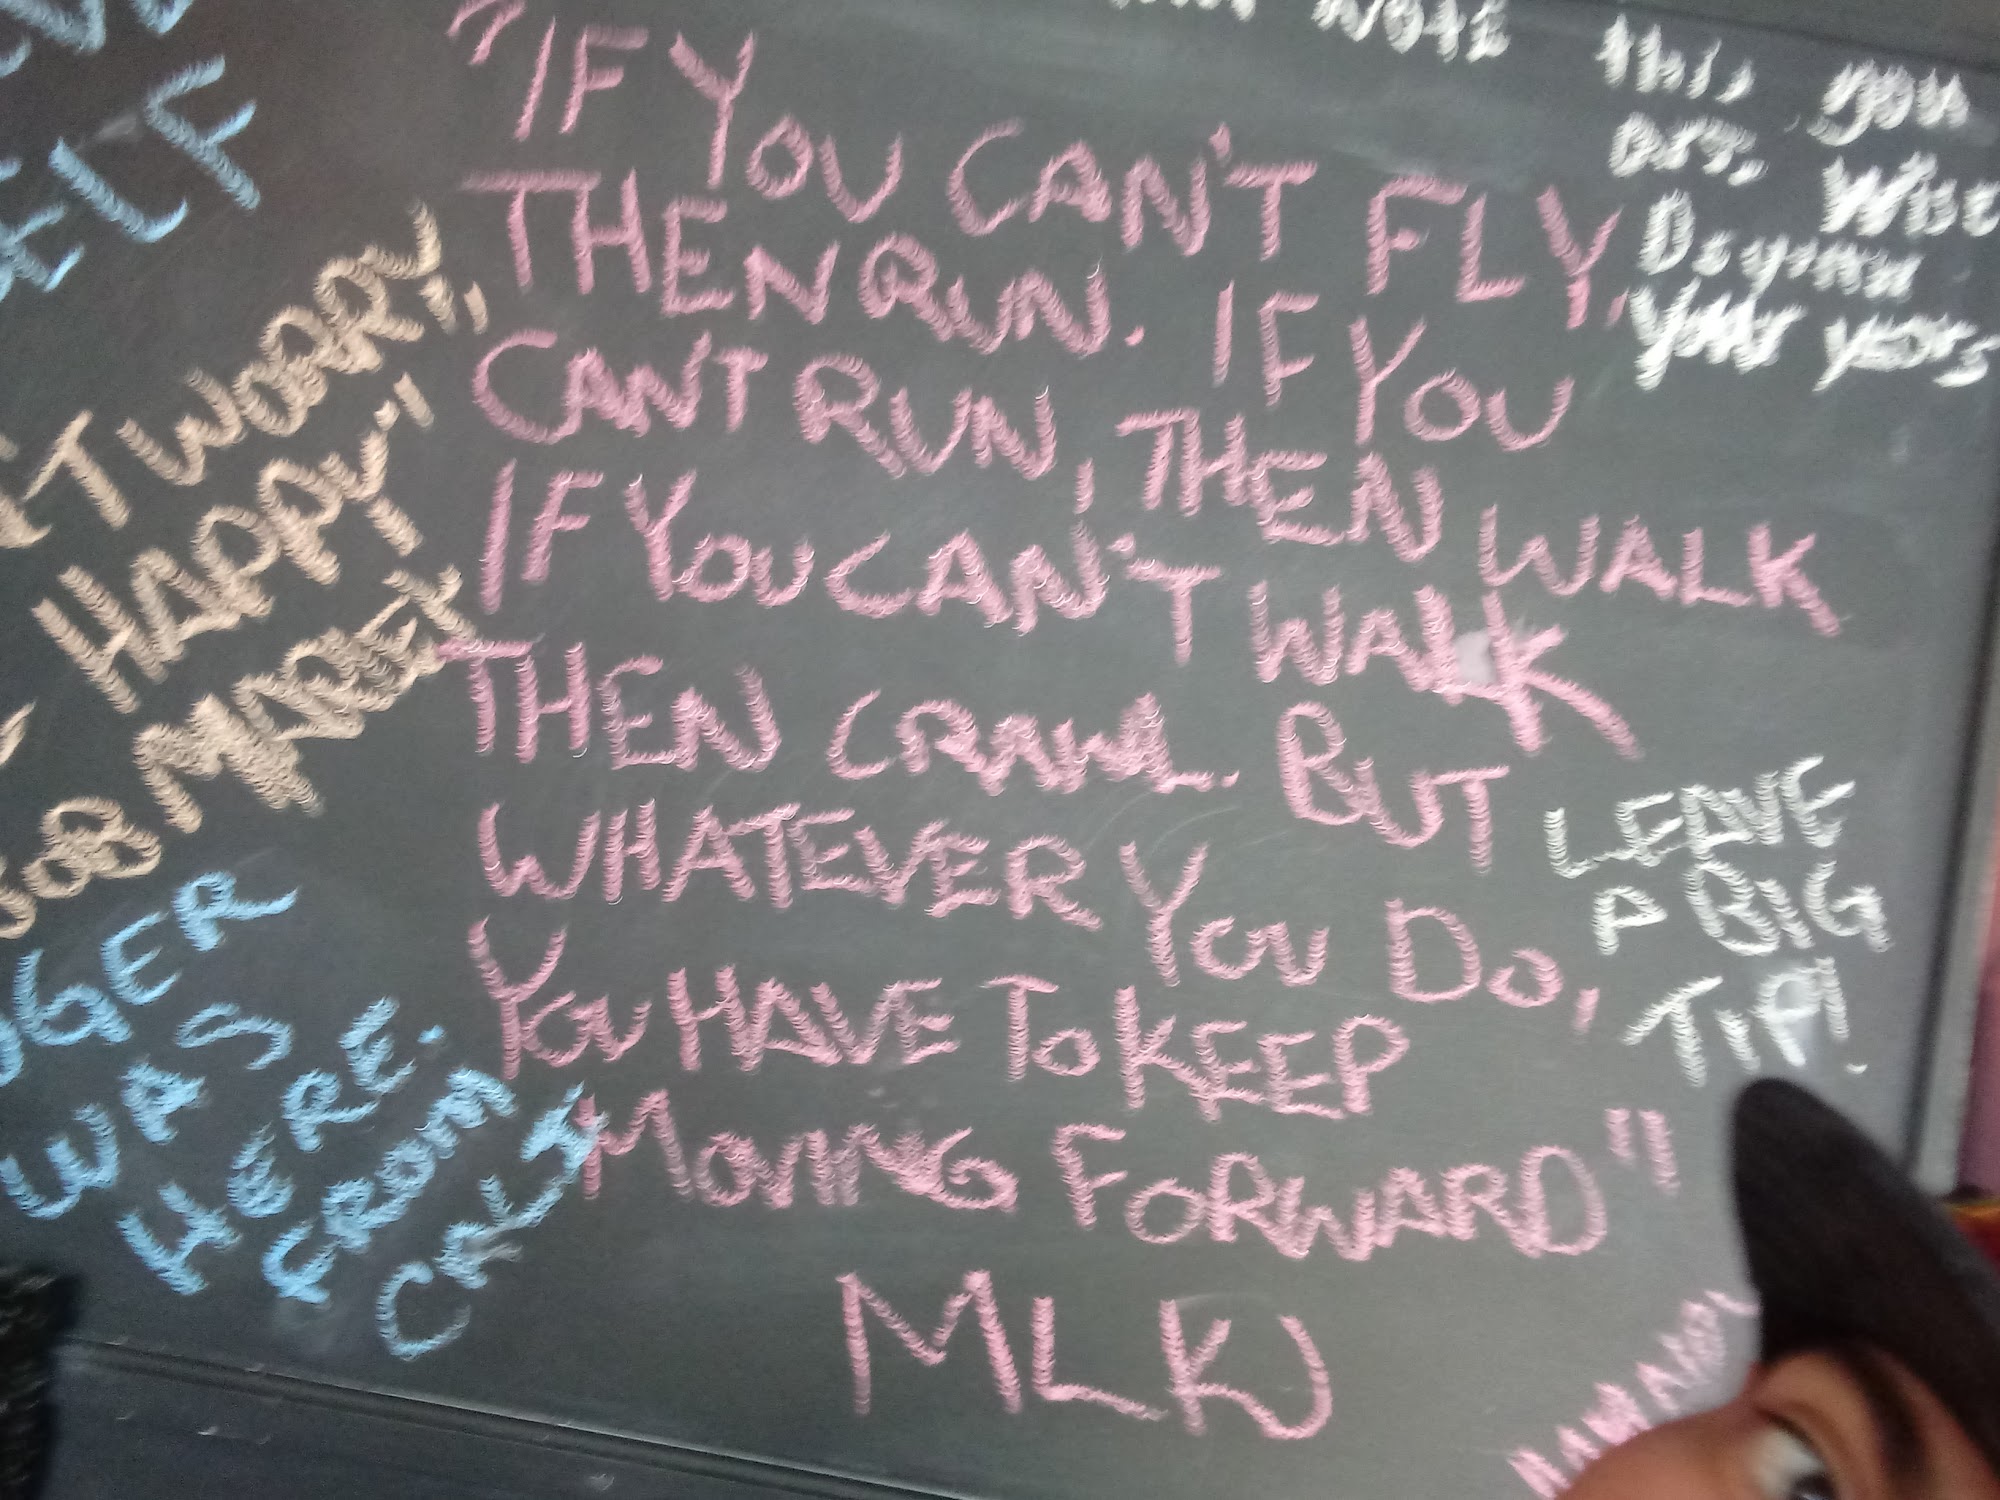 "IF YOU CAN'T FLY,
THEN RUN. IF YOU
CAN'T RUN, THEN WALK
IF YOU CAN'T WALK
THEN CRAWL. BUT
WHATEVER YOU DO,
YOU HAVE TO KEEP
MOVING FORWARD"
MLK
ELF
T WORRY,
HAPPY"
MARLEY
GER
WAS
HERE.
FROM
CALI
this you
Wise
Your years
LEAVE
A BIG
TIP!